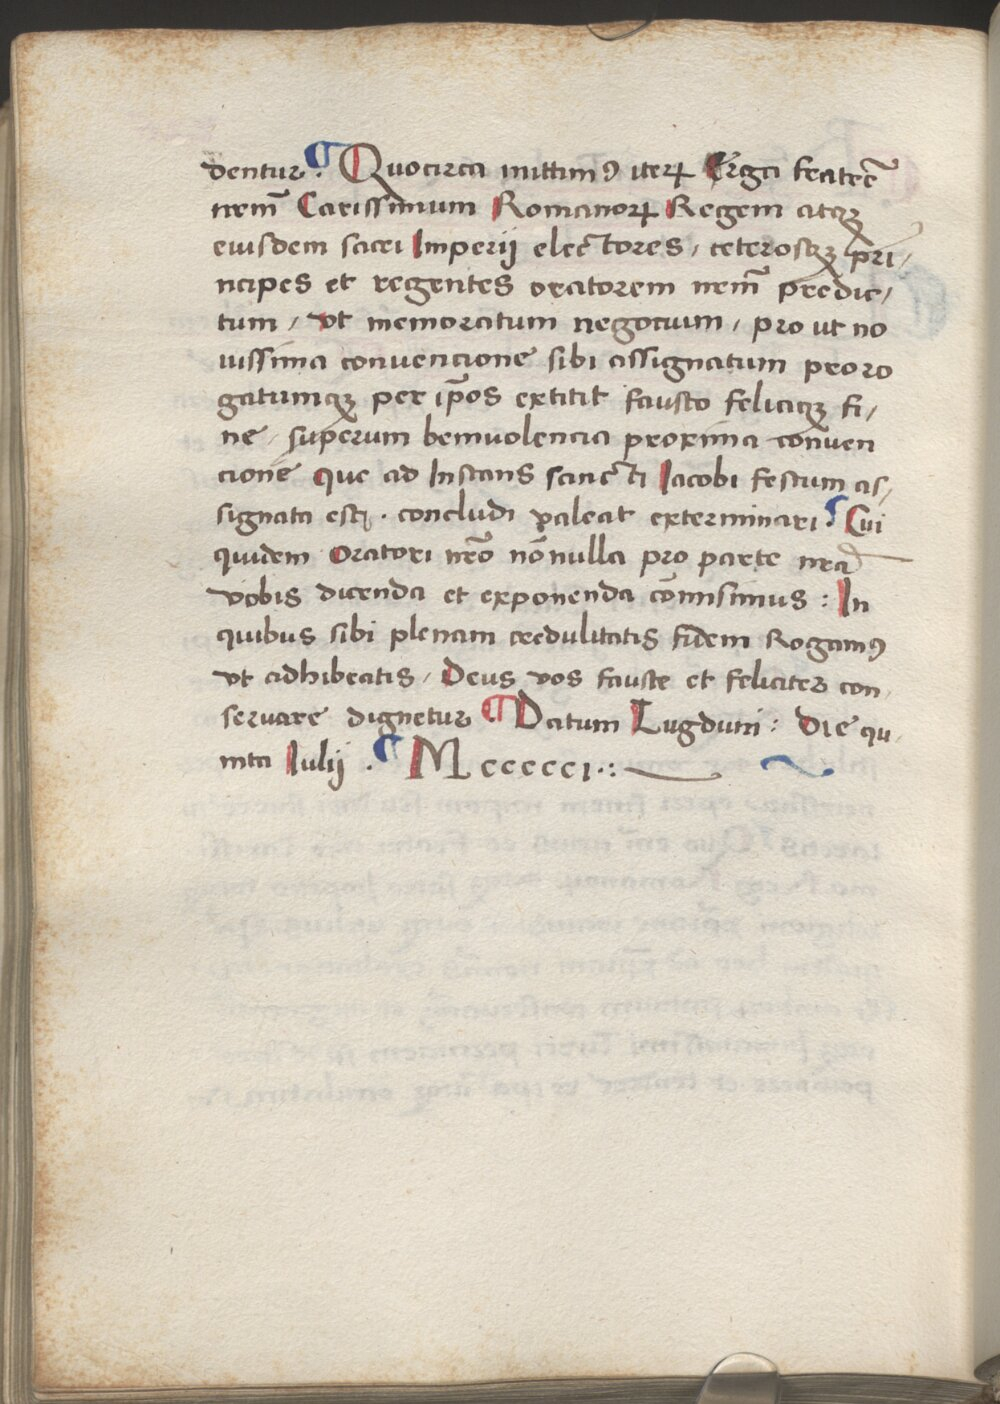 dentur. ¶ Quocirca mittimꝰ iteꝝ Erga fratrē
nrm̄ Carissimum Romanoꝝ Regem atqꝫ
eiusdem sacri Imperij electores, ceterosqꝫ pri,
ncipes et regentes oratorem nrm̄ predic,
tum, vt memoratum negocium, pro ut no
uissima convencione sibi assignatum proro
gatumqꝫ per ip̄os extitit fausto feliciqꝫ fi,
ne, superum benivolencia proxima conven
cione que ad Instans sancti Iacobi festum as,
signata est, . concludi valeat exterminari. ¶ Cui
quidem Oratori nr̄o nōnulla pro parte nr̄a
vobis dicenda et exponenda cōmisimus : In
quibus sibi plenam credulitatis fidem Rogamꝰ
vt adhibeatis, Deus vos fauste et feliciter con,
servare dignetur ¶ Datum Lugduni : Die qu,
inta Iulij . ¶ Mccccci .: